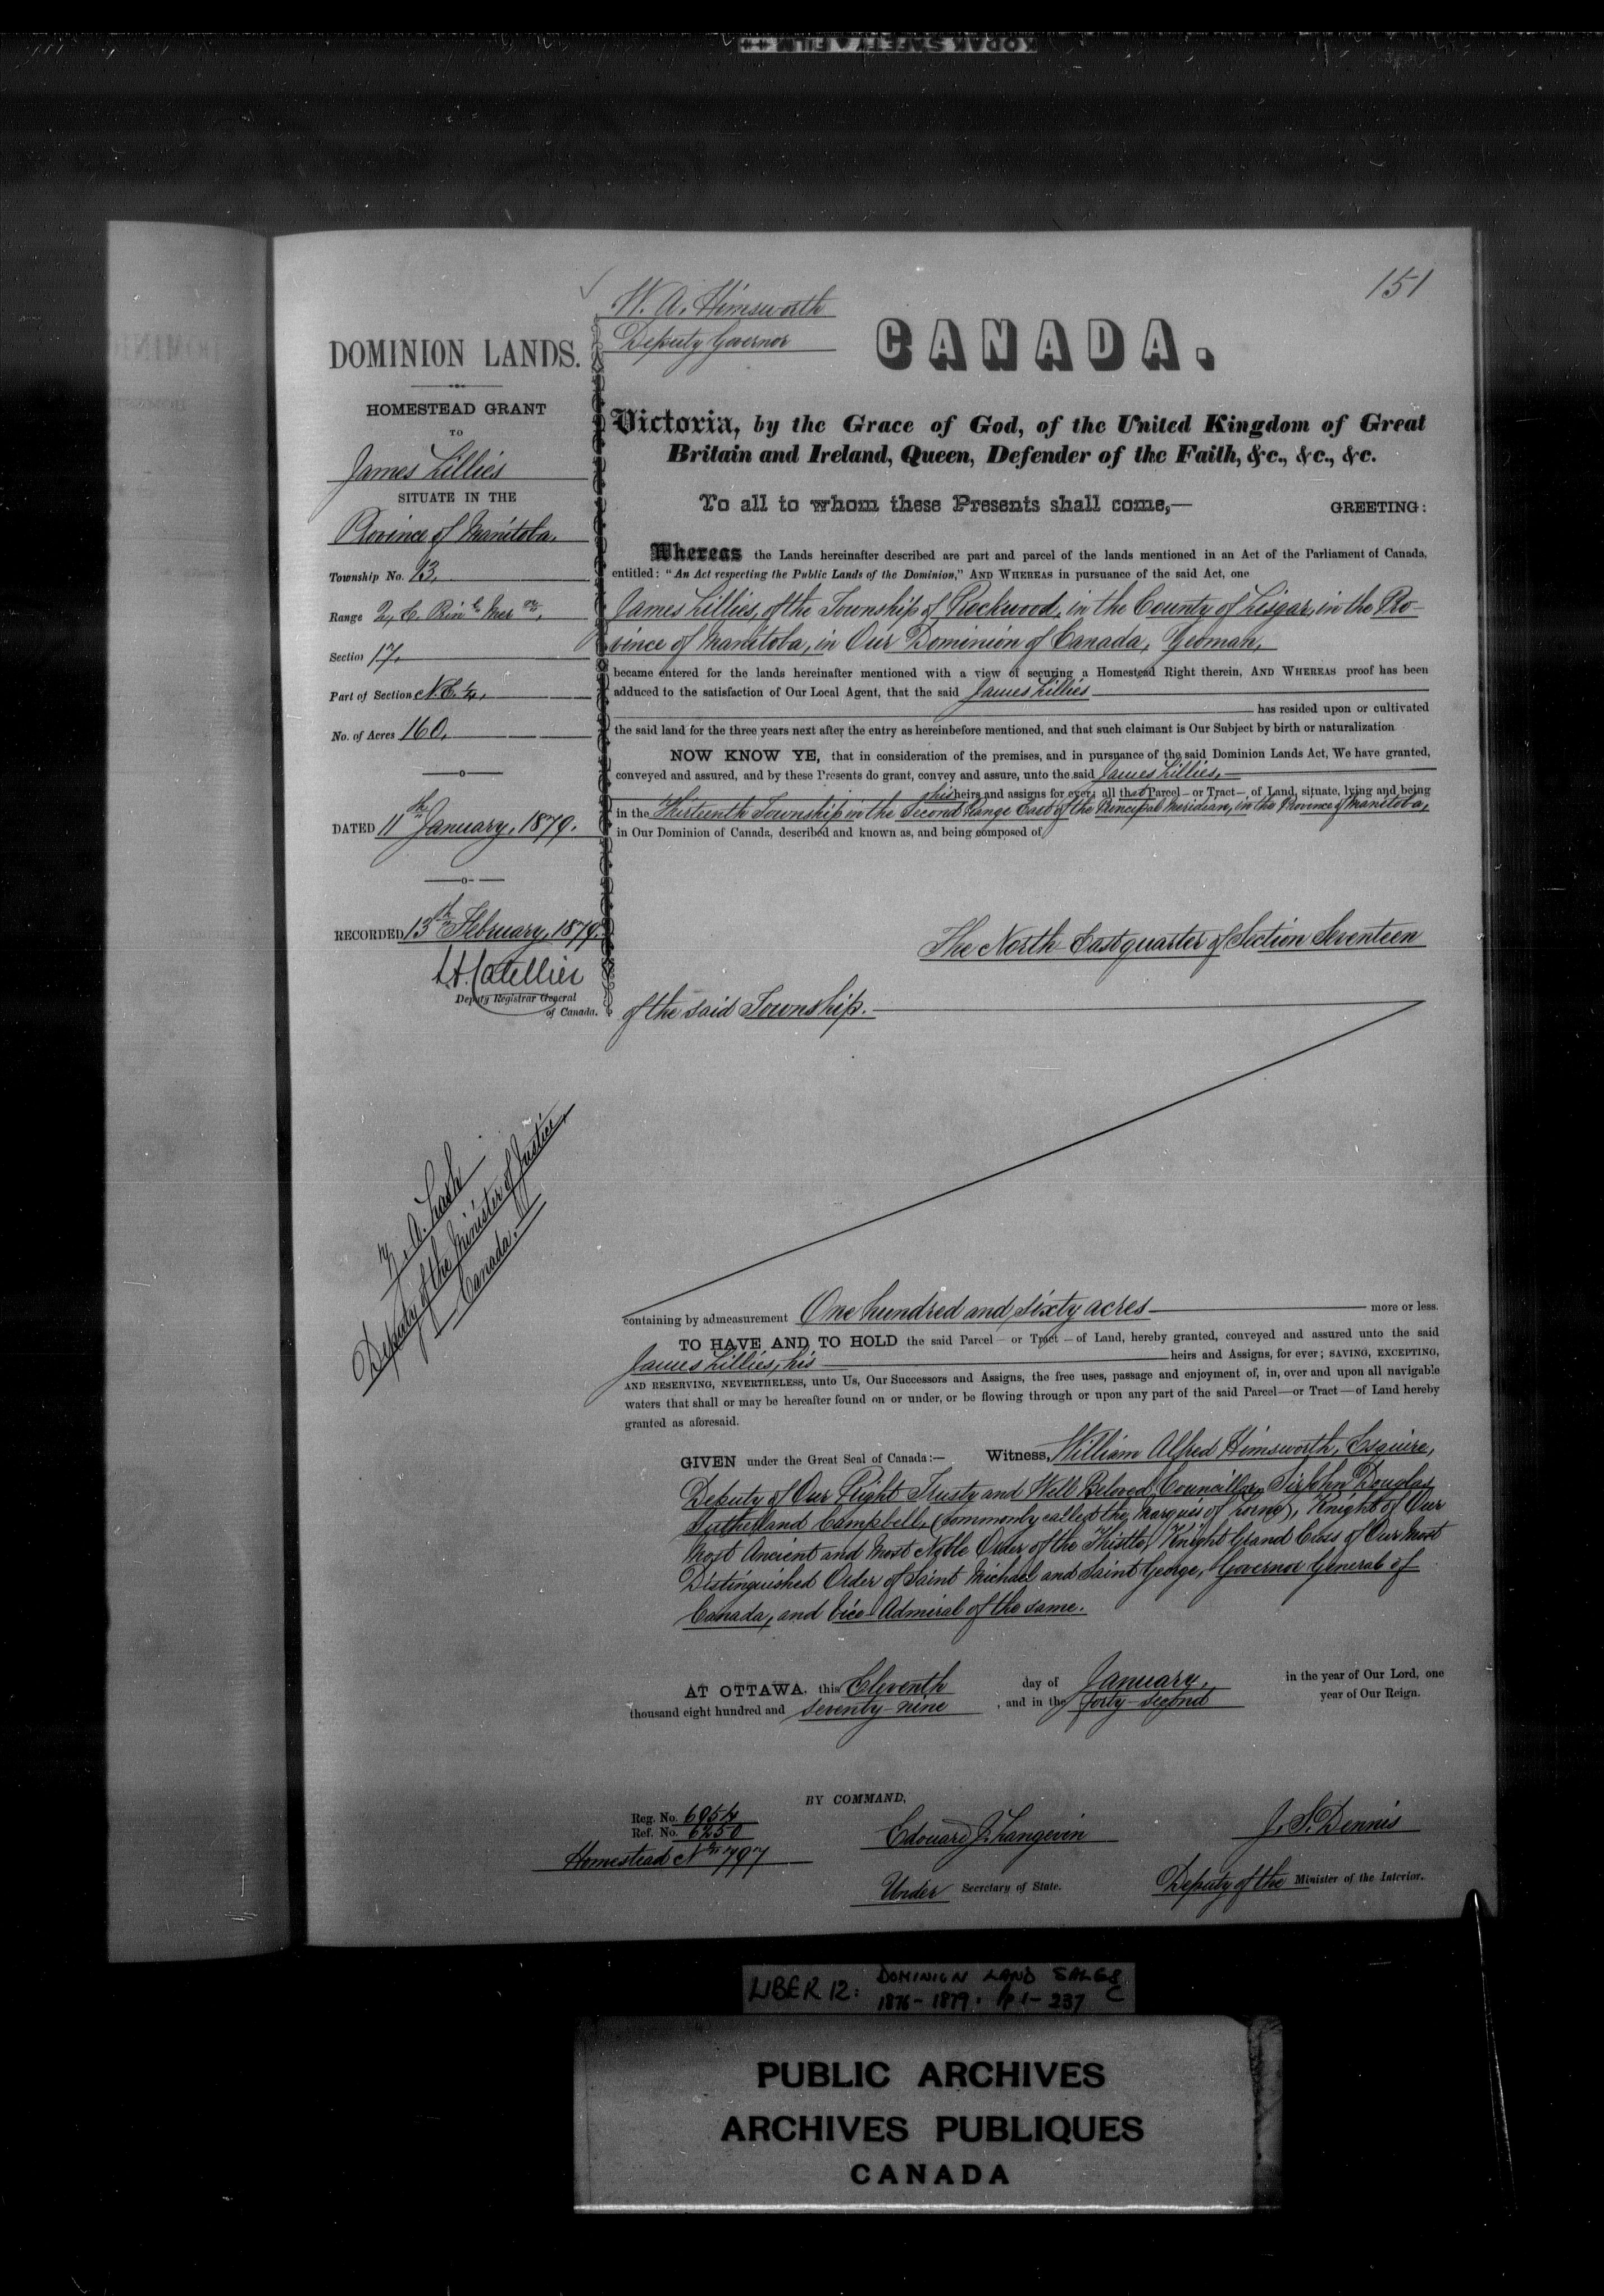 KODAK SAFETY FILM
151
W. A. Himsworth
Deputy Governor
CANADA.
DOMINION LANDS.
HOMESTEAD GRANT
TO
James Lillies
SITUATE IN THE
Province of Manitoba.
Township No. 13,
Range 2, E. Prin.l Mer.n,
Section 17,
Part of Section N.E. 1/4,
No. of Acres 160,
DATED 11th January, 1879.
RECORDED 13th February, 1879.
L. A. Catellier
Deputy Registrar General
of Canada.
Z. A. Lash
Deputy of the Minister of Justice,
Canada.
Victoria, by the Grace of God, of the United Kingdom of Great
Britain and Ireland, Queen, Defender of the Faith, &c., &c., &c.
To all to whom these Presents shall come,— GREETING:
Whereas the Lands hereinafter described are part and parcel of the lands mentioned in an Act of the Parliament of Canada,
entitled: "An Act respecting the Public Lands of the Dominion," AND WHEREAS in pursuance of the said Act, one
James Lillies, of the Township of Rockwood, in the County of Lisgar, in the Pro-
vince of Manitoba, in Our Dominion of Canada, Yeoman,
became entered for the lands hereinafter mentioned with a view of securing a Homestead Right therein, AND WHEREAS proof has been
adduced to the satisfaction of Our Local Agent, that the said James Lillies
has resided upon or cultivated
the said land for the three years next after the entry as hereinbefore mentioned, and that such claimant is Our Subject by birth or naturalization
NOW KNOW YE, that in consideration of the premises, and in pursuance of the said Dominion Lands Act, We have granted,
conveyed and assured, and by these Presents do grant, convey and assure, unto the said James Lillies,
his heirs and assigns for ever; all that Parcel—or Tract—, of Land, situate, lying and being
in the Thirteenth Township in the Second Range East of the Principal Meridian, in the Province of Manitoba,
in Our Dominion of Canada, described and known as, and being composed of
The North East quarter of Section Seventeen
of the said Township.
containing by admeasurement One hundred and sixty acres more or less.
TO HAVE AND TO HOLD the said Parcel—or Tract—of Land, hereby granted, conveyed and assured unto the said
James Lillies, his heirs and Assigns, for ever; SAVING, EXCEPTING,
AND RESERVING, NEVERTHELESS, unto Us, Our Successors and Assigns, the free uses, passage and enjoyment of, in, over and upon all navigable
waters that shall or may be hereafter found on or under, or be flowing through or upon any part of the said Parcel—or Tract—of Land hereby
granted as aforesaid.
GIVEN under the Great Seal of Canada:— Witness, William Alfred Himsworth, Esquire,
Deputy of Our Right Trusty and Well Beloved Councillor, Sir John Douglas
Sutherland Campbell, (commonly called the Marquis of Lorne), Knight of Our
Most Ancient and Most Noble Order of the Thistle, Knight Grand Cross of Our Most
Distinguished Order of Saint Michael and Saint George, Governor General of
Canada, and Vice-Admiral of the same.
AT OTTAWA, this Eleventh day of January, in the year of Our Lord, one
thousand eight hundred and seventy-nine, and in the forty-second year of Our Reign.
BY COMMAND,
Reg. No. 6954
Ref. No. 6250
Homestead No. 797
Edouard J. Langevin
Under Secretary of State.
J. S. Dennis
Deputy of the Minister of the Interior.
LIBER 12: DOMINION LAND SALES
1876-1879. pp 1-237 C
PUBLIC ARCHIVES
ARCHIVES PUBLIQUES
CANADA